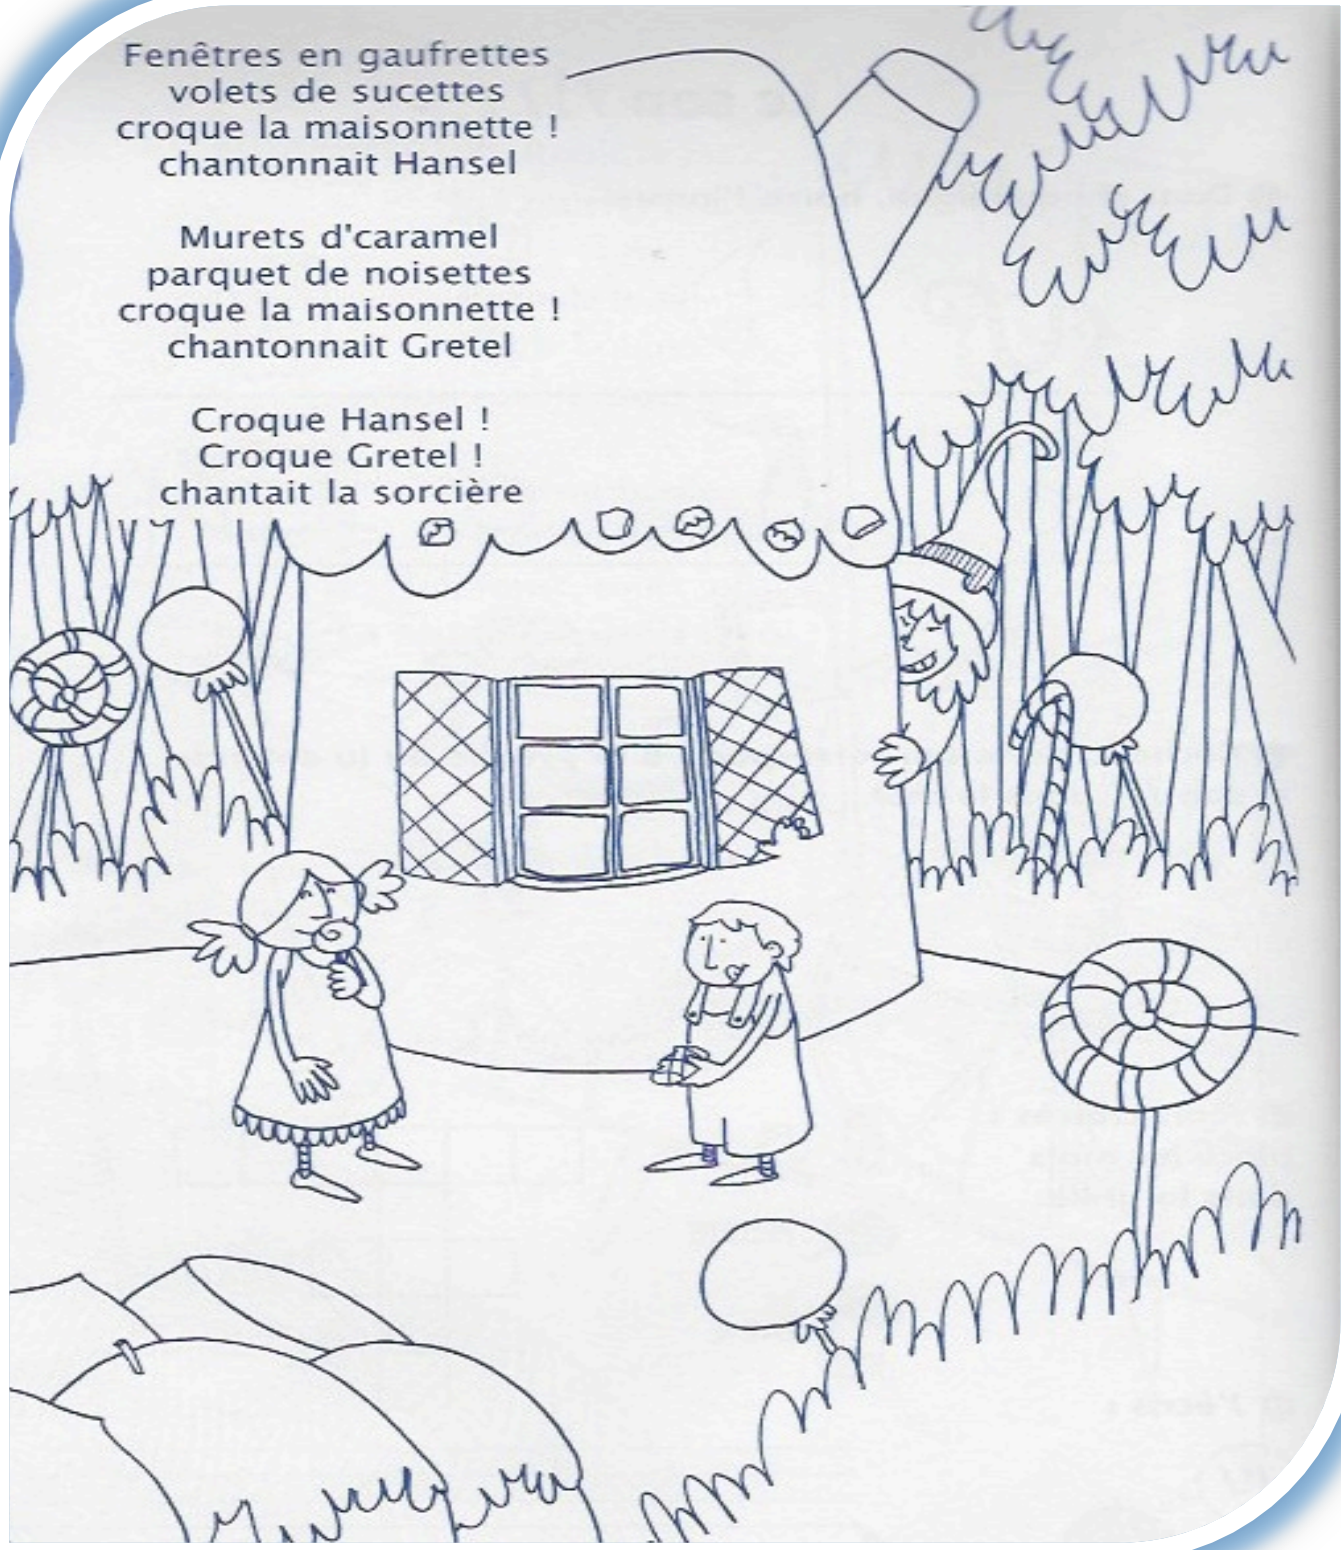 Fenêtres en gaufrettes
volets de sucettes
croque la maisonnette !
chantonnait Hansel
Murets d'caramel
parquet de noisettes
croque la maisonnette !
chantonnait Gretel
Croque Hansel !
Croque Gretel !
chantait la sorcière